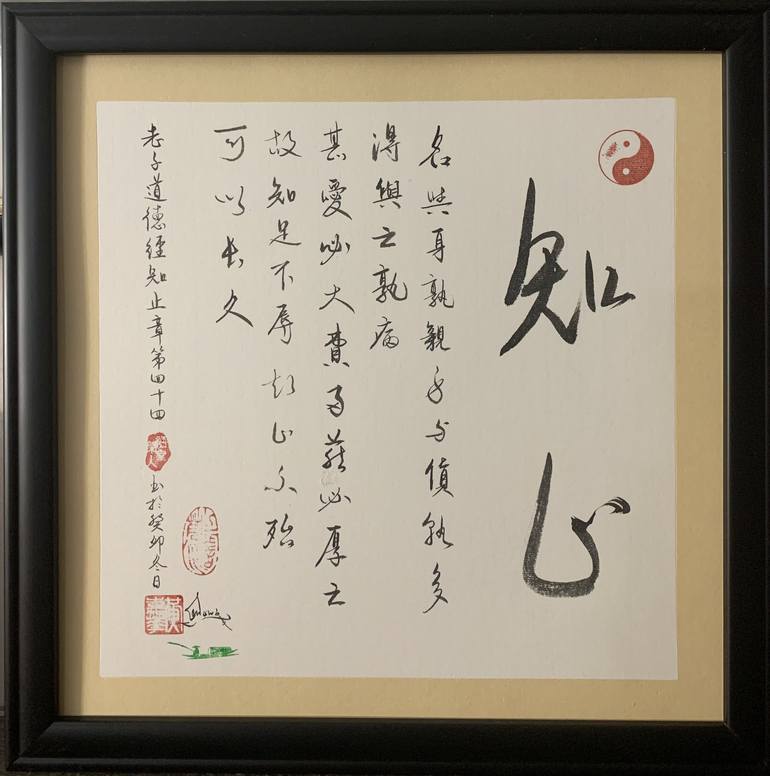 知止
名與身孰親身与貨孰多
得與亡孰病
甚愛必大費多藏必厚亡
故知足不辱知止不殆
可以長久
老子道德經知止章第四十四
书於癸卯冬日